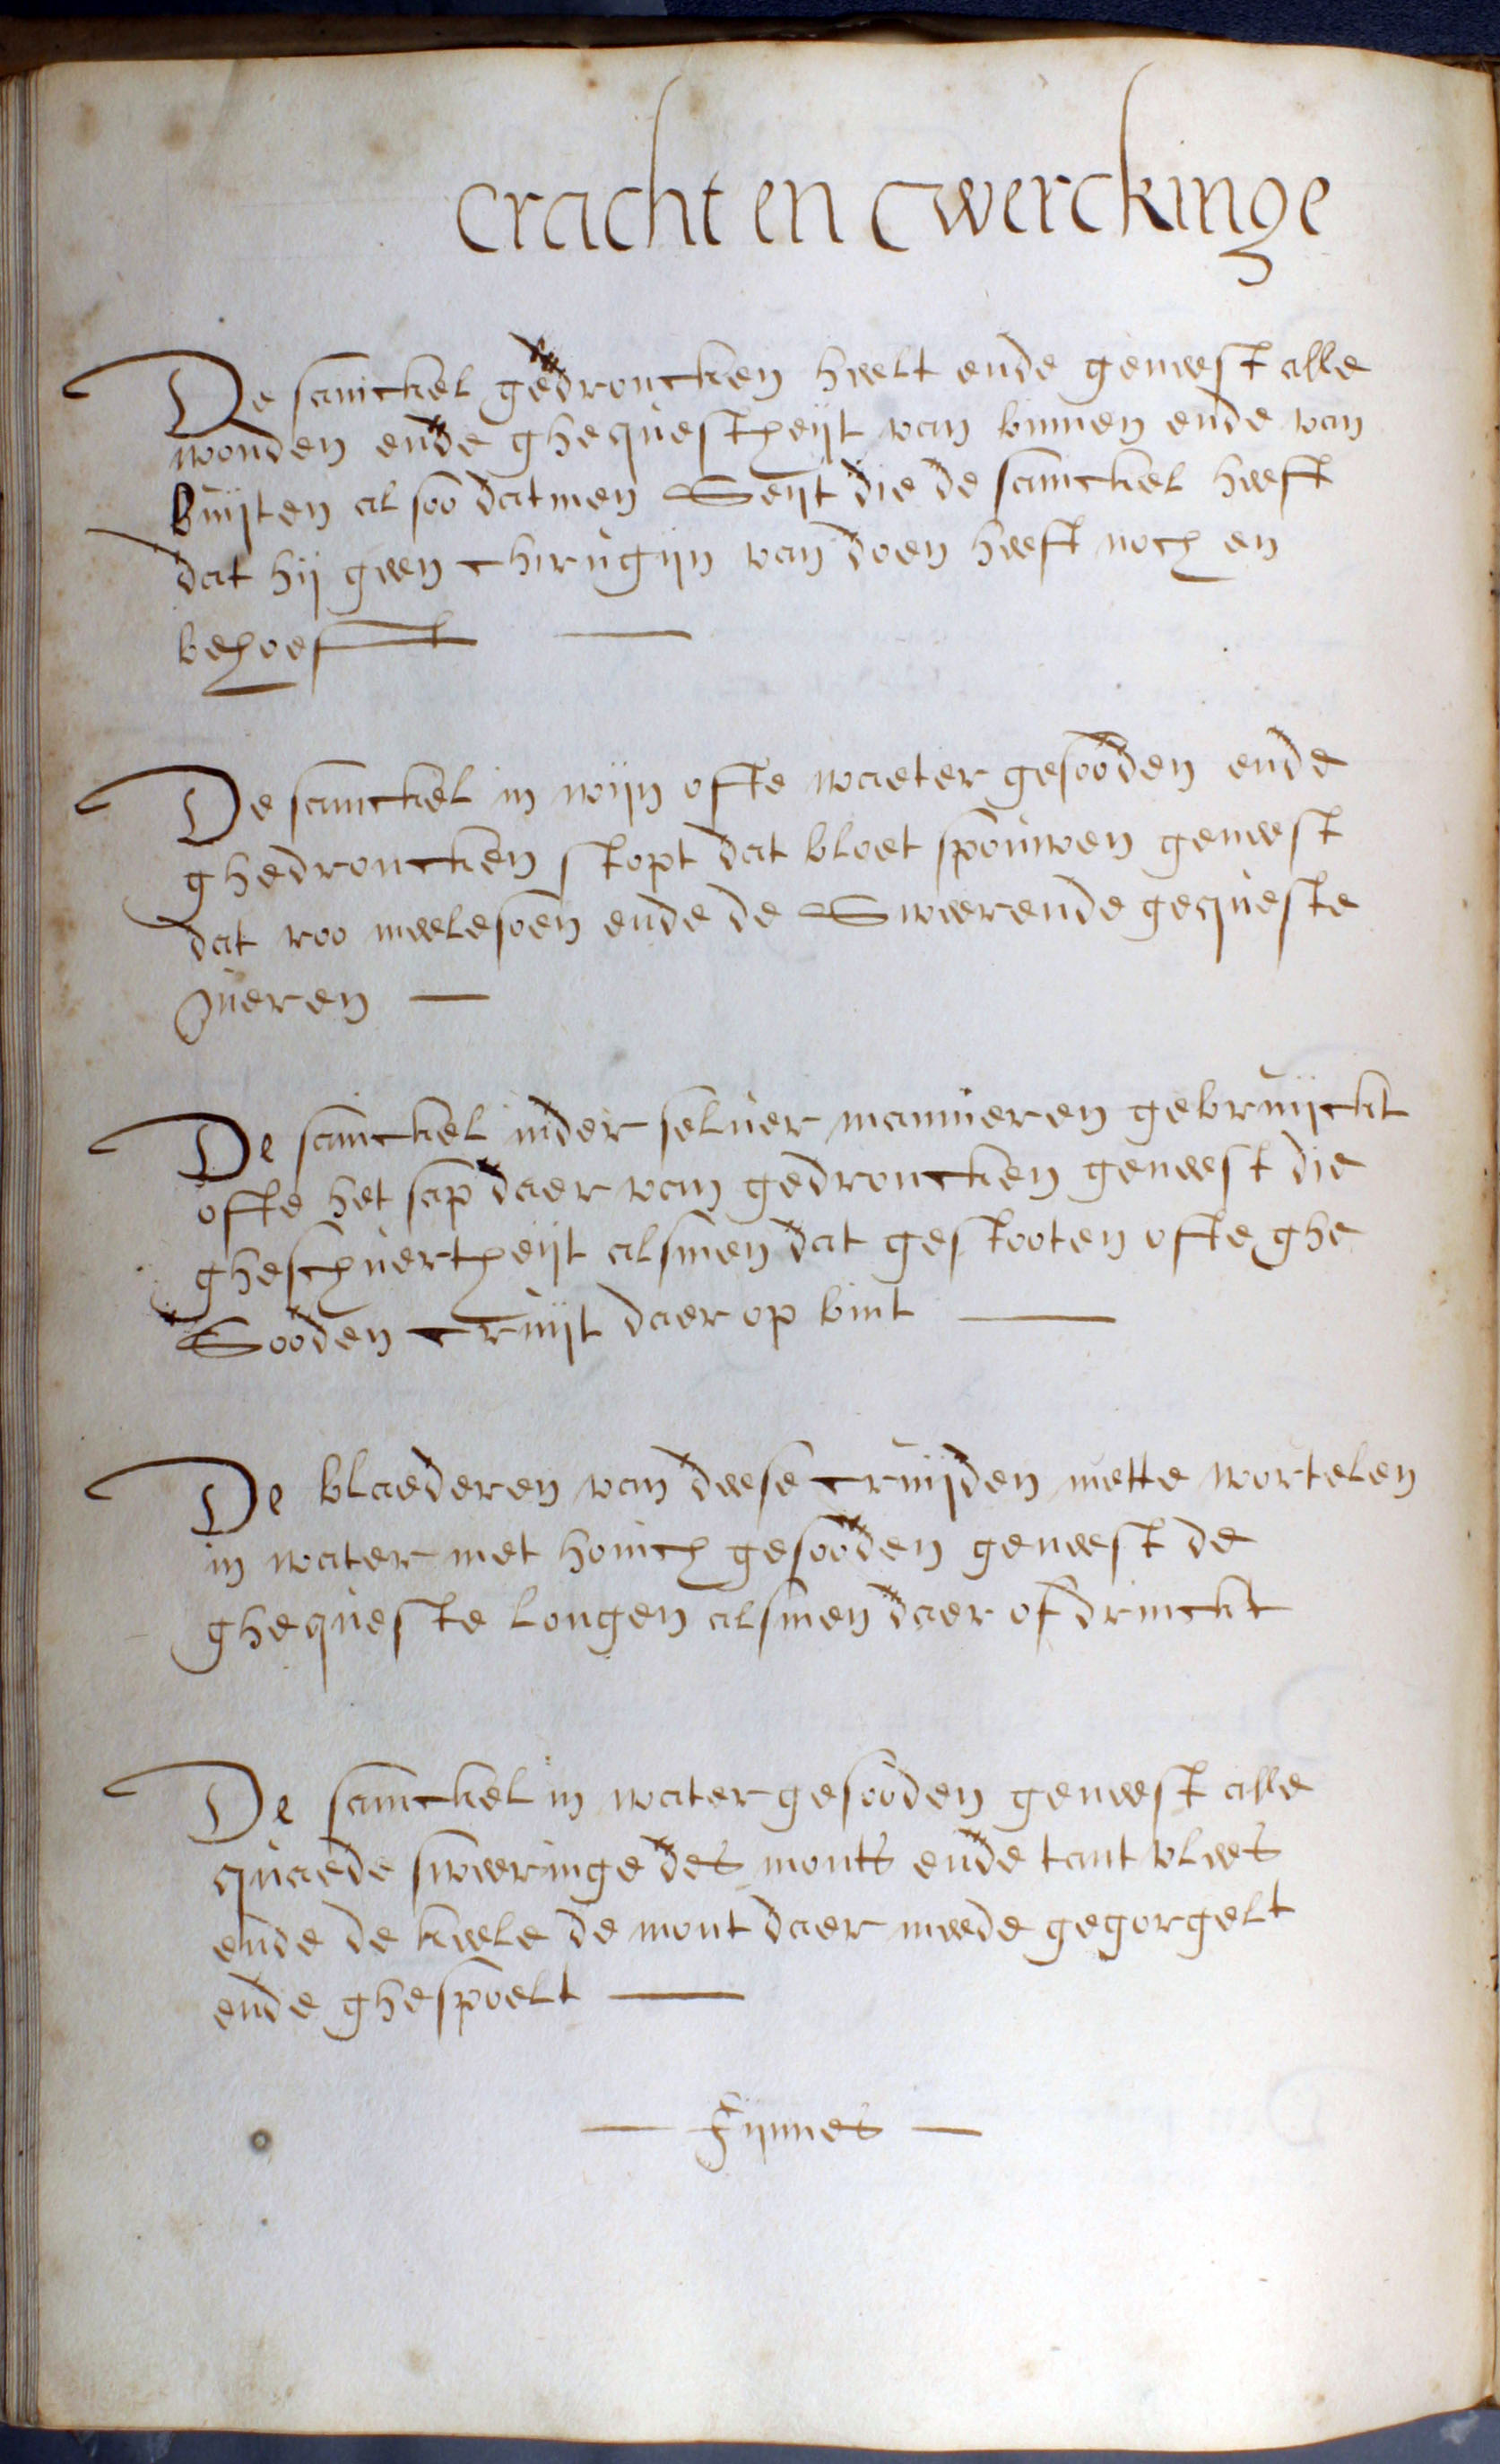 cracht en werckinge
De sanickel gedroncken heelt ende geneest alle
wonden ende ghequestheijt van binnen ende van
buijten al soo datmen Seijt die de sanickel heeft
dat hij geen chirugijn van doen heeft noch en
behoeft
De sanickel in wijn ofte waeter gesooden ende
ghedroncken stopt dat bloet spouwen geneest
dat roo meelesoen ende de Sweerende gequeste
nieren
De sanickel inder seluer manieren gebruijckt
ofte het sap daer van gedroncken geneest die
gheschuertheijt alsmen dat gestooten ofte ghe
Sooden cruijt daer op bint
De blaederen van deese cruijden mette wortelen
in water met honich gesooden geneest de
ghequeste longen alsmen daer of drinckt
De sanickel in water gesooden geneest alle
quaede sweeringe des monts ende tant vlees
ende de keele de mont daer meede gegorgelt
ende ghespoelt
Fijnnes